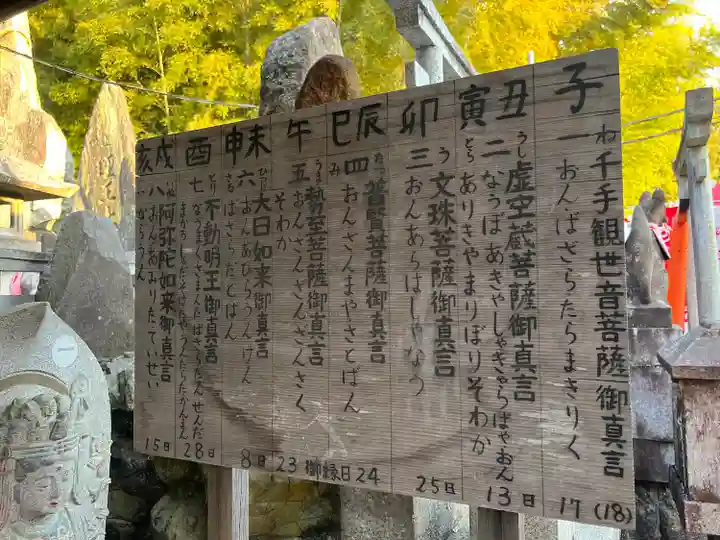 子 ね 千手観世音菩薩御真言
一 おんばさらたらまきりく
17(18)
丑 うし 虚空蔵菩薩御真言
寅 とら
二 なうぼあきゃしゃきゃらばやおん
ありきやまりぼりそわか
13日
卯 う 文珠菩薩御真言
三 おんあらはしゃなう
25日
辰 たつ 普賢菩薩御真言
巳 み
四 おんさんまやさとばん
24
御縁日
午 うま 勢至菩薩御真言
五 おんさんざんざんさく
そわか
23
未 ひつじ 大日如来御真言
申 さる
六 おんあびらうんけん
ばさらたとばん
8日
酉 とり 不動明王御真言
七
28日
戌 いぬ 阿弥陀如来御真言
亥
八 おんあみりたていせい
からうん
15日